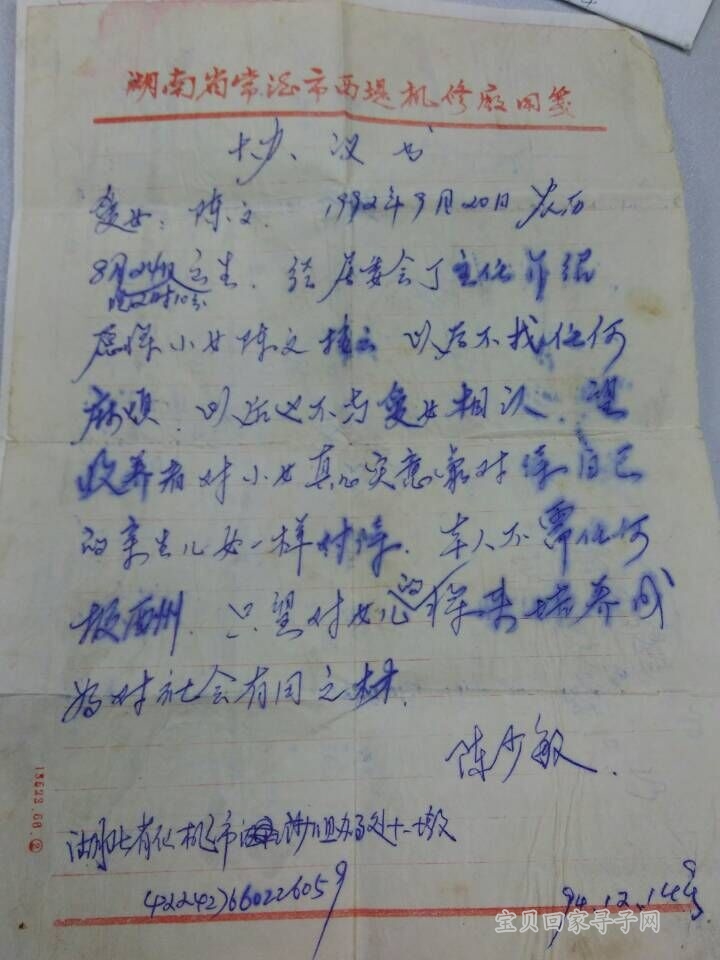 湖南省常德市西堤机修厰用笺
协议书
爱女：陈文． 1992年9月20日 农历
8月24日出生．经居委会丁主任介绍．
晚22时10分
愿将小女陈文 以后不找任何
麻烦．以后也不与爱女相认．望
收养者对小女真心实意 对待自己
的亲生儿女一样对待．本人不需任何
报酬州．只望对女儿的将来培养成
为对社会有用之材．
陈少敏．
湖北省仙桃市 办事处
94.12.14号
13623.68.②
宝贝回家寻子网